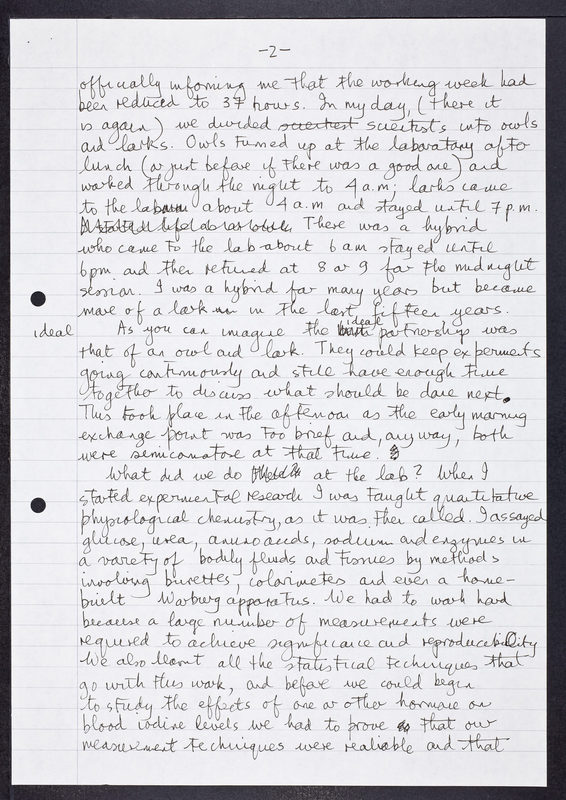 -2-
officially informing me that the working week had
been reduced to 37 hours. In my day, (there it
is again) we divided scientists into owls
and larks. Owls turned up at the laboratory after
lunch (or just before if there was a good one) and
worked through the night to 4 a.m; larks came
to the lab about 4 a.m and stayed until 7 p.m.
There was a hybrid
who came to the lab about 6 am stayed until
6pm and then returned at 8 or 9 for the midnight
session. I was a hybrid for many years but became
more of a lark in the last fifteen years.
ideal
As you can imagine the ideal partnership was
that of an owl and lark. They could keep experiments
going continuously and still have enough time
together to discuss what should be done next.
This took place in the afternoon as the early morning
exchange point was too brief and, anyway, both
were semicomatose at that time.
What did we do at the lab? When I
started experimental research I was taught quantitative
physiological chemistry, as it was then called. I assayed
glucose, urea, amino acids, sodium and enzymes in
a variety of bodily fluids and tissues by methods
involving burettes, colorimeters and even a home-
built Warburg apparatus. We had to work hard
because a large number of measurements were
required to achieve significance and reproducibility
We also learnt all the statistical techniques that
go with this work, and before we could begin
to study the effects of one or other hormone on
blood iodine levels we had to prove that our
measurement techniques were realiable and that